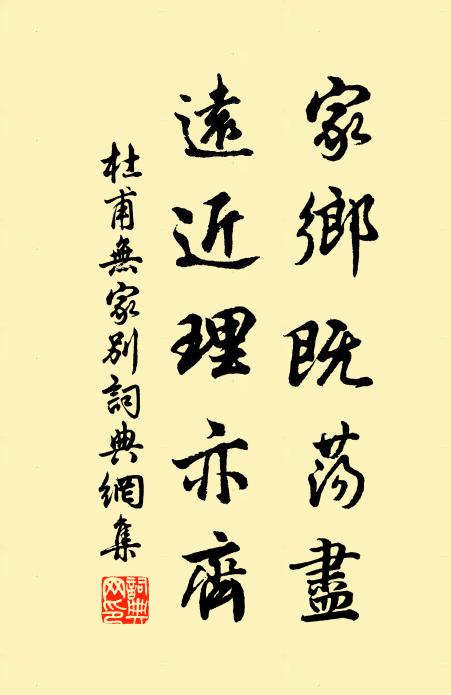 家鄉既蕩盡
遠近理亦齊
杜甫無家別詞典網集
詞典
网印